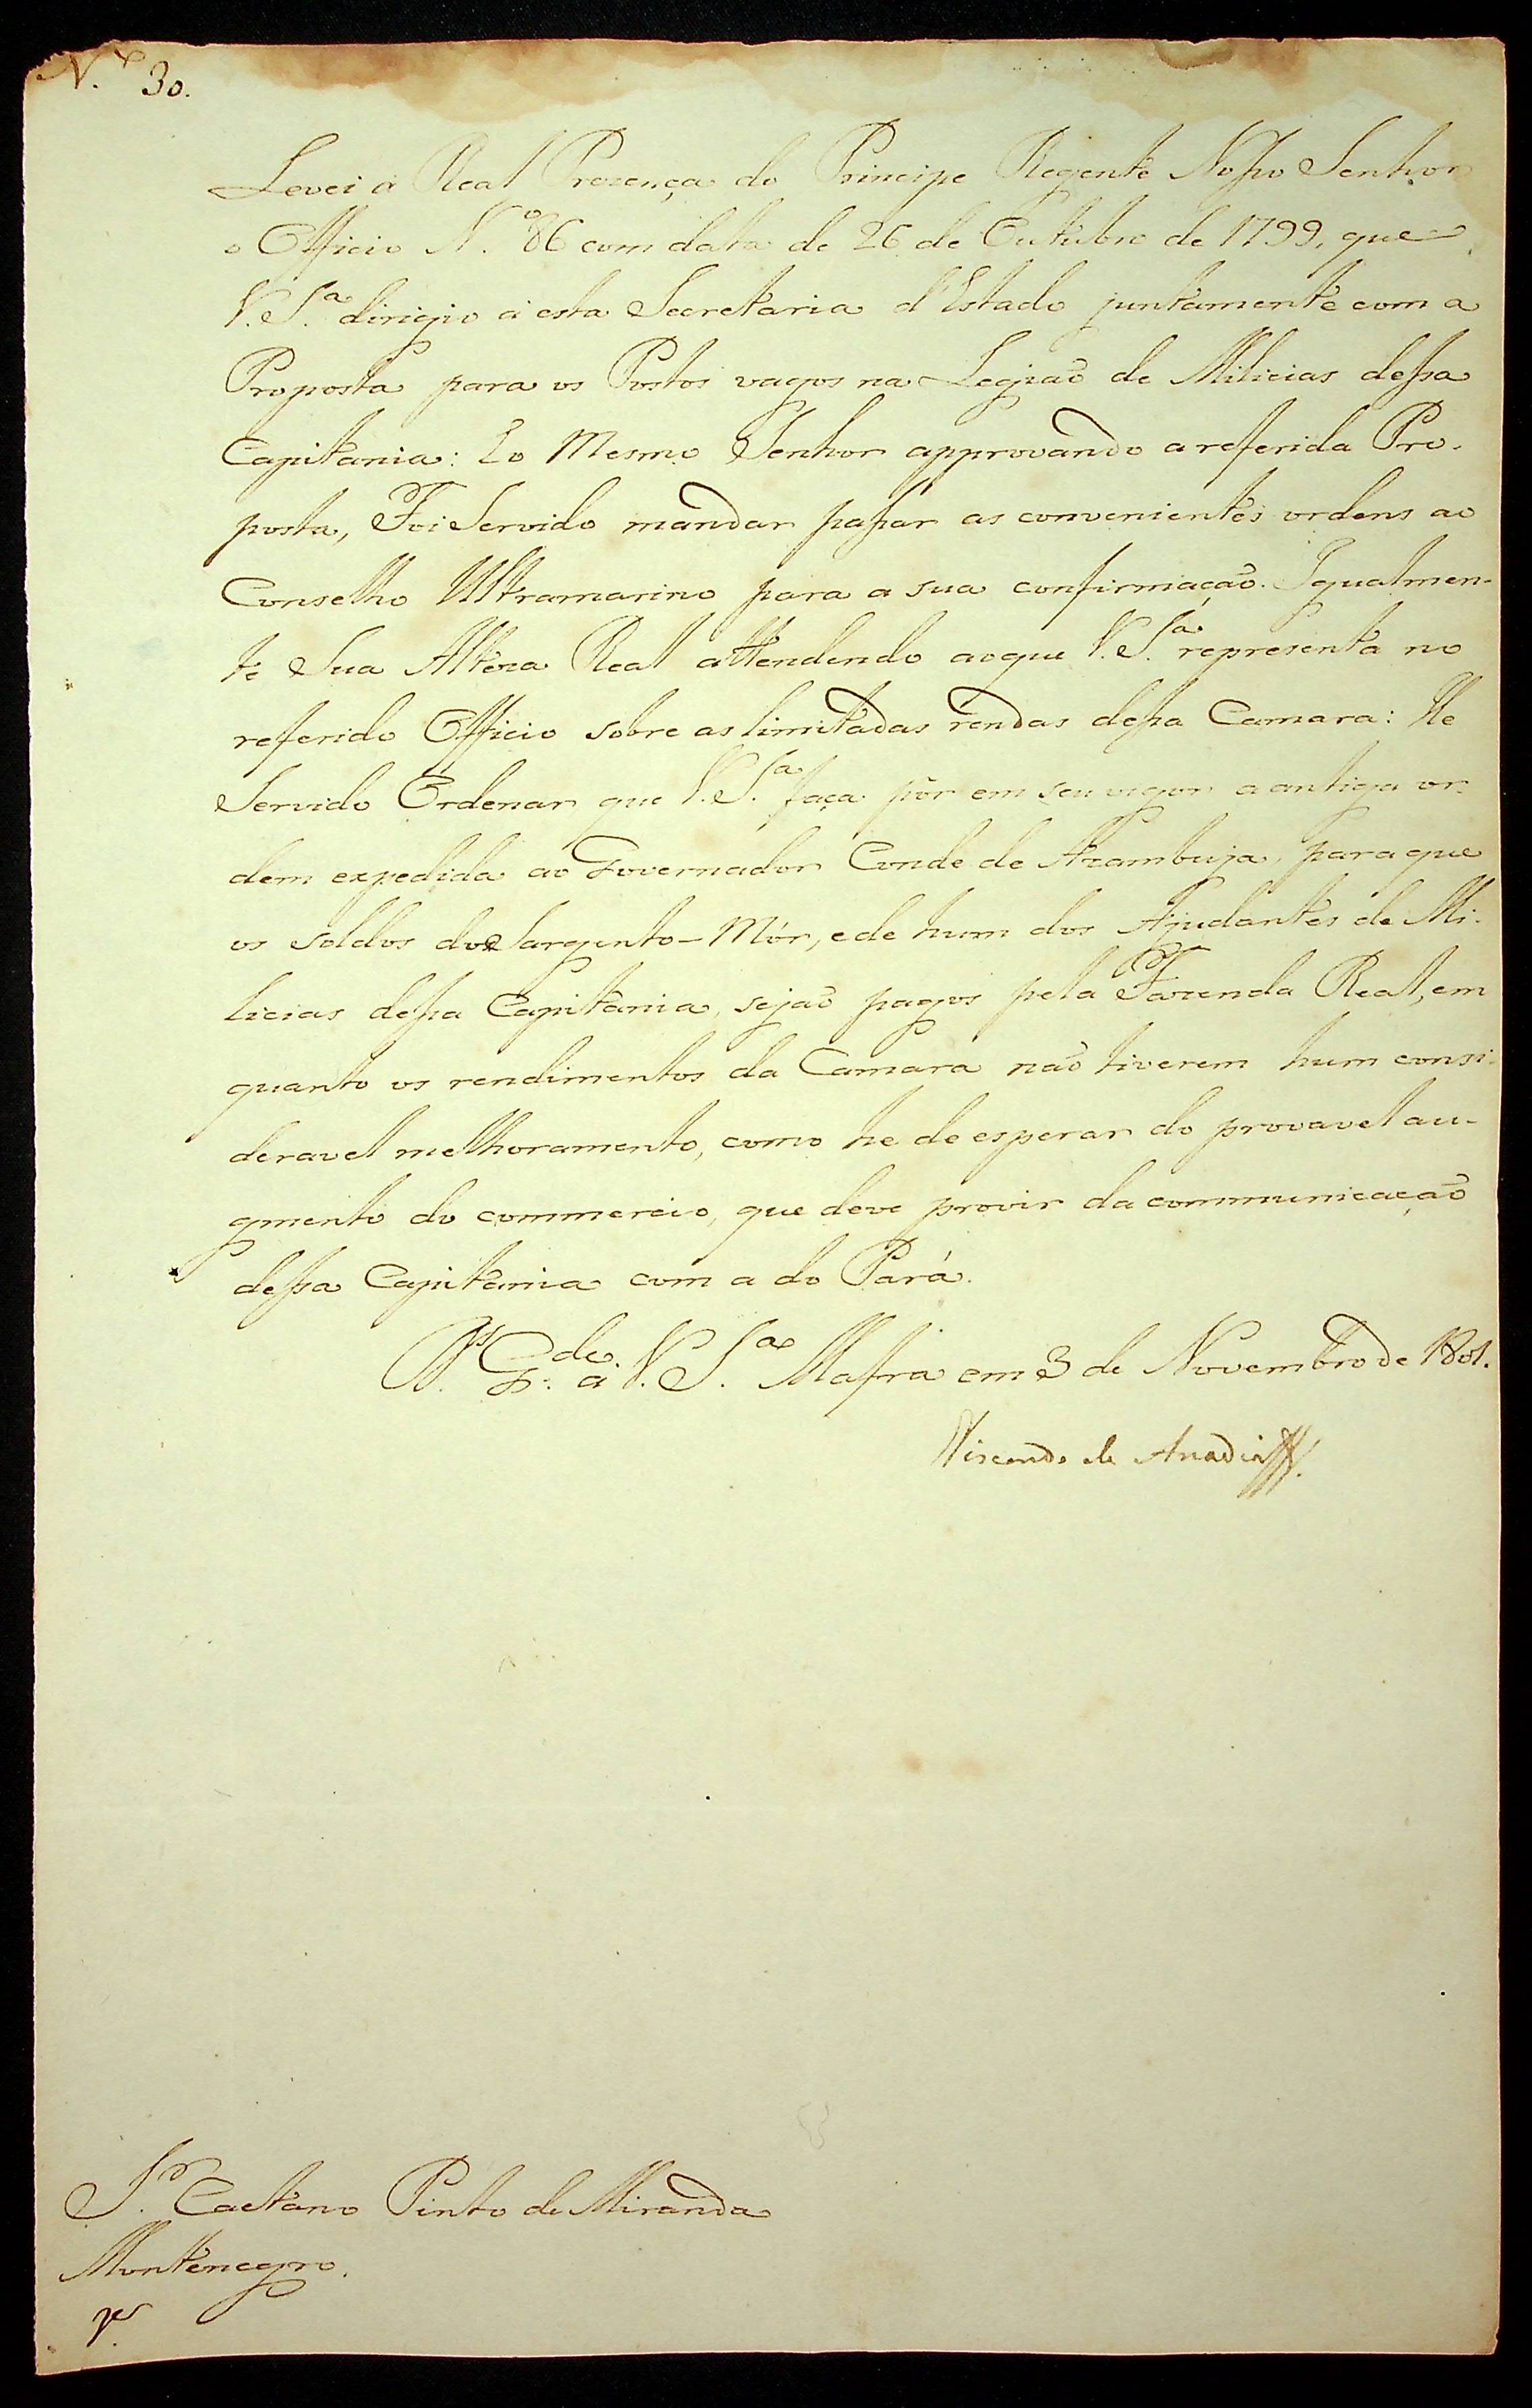 N.º 30.
Levei á Real Prezença do Principe Regente Nosso Senhor
o Officio N.º 86 com data de 26 de Outubro de 1799, que
V. S.ª dirigio á esta Secretaria d'Estado juntamente com a
Proposta para os Postos vagos na Legiaõ de Milicias dessa
Capitania: E o Mesmo Senhor approvando a referida Pro-
posta, Foi Servido mandar passar as convenientes ordens ao
Conselho Ultramarino para a sua confirmaçaõ. Igualmen-
te Sua Alteza Real attendendo ao que V. S.ª representa no
referido Officio sobre as limitadas rendas dessa Camara: He
Servido Ordenar que V. S.ª faça pôr em seu vigor a antiga or-
dem expedida ao Governador Conde de Azambuja, para que
os soldos do Sargento-Mór, e de hum dos Ajudantes de Mi-
licias dessa Capitania, sejaõ pagos pela Fazenda Real, em
quanto os rendimentos da Camara naõ tiverem hum consi-
deravel melhoramento, como he de esperar do provavel au-
gmento do commercio, que deve provir da communicaçaõ
dessa Capitania com a do Pará.
D.s G.de a V. S.ª Mafra em 3 de Novembro de 1801.
Visconde de Anadia
S.r Caetano Pinto de Miranda
Montenegro.